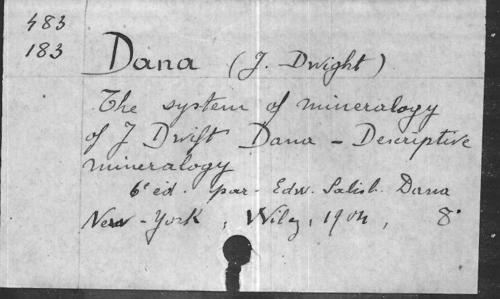 483
183
Dana (J. Dwight)
The system of mineralogy
of J Dwift Dana - Descriptive
mineralogy
6e ed. par. Edw. Salisb. Dana
New-York, Wiley, 1904, 8°